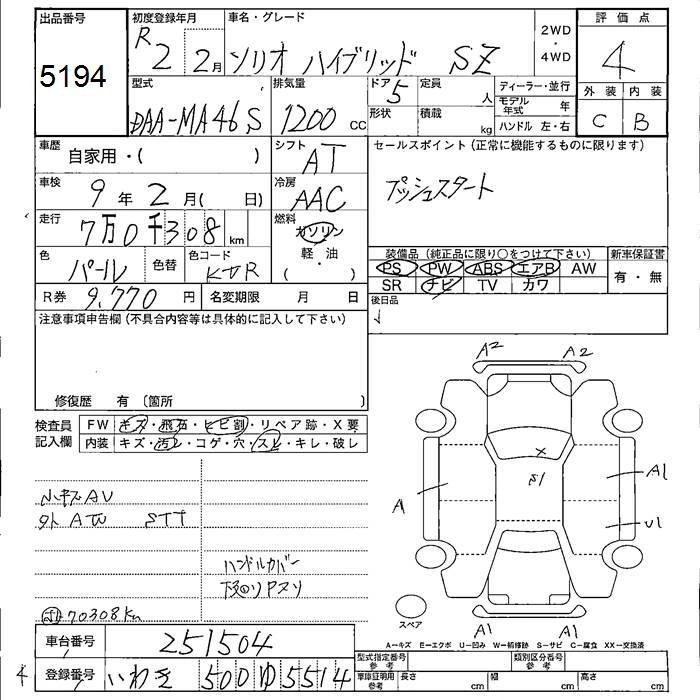 出品番号
5194
初度登録年月
R2 2月
車名・グレード
ソリオ ハイブリッド SZ
2WD・4WD
評価点
4
外装 内装
C B
型式
DAA-MA46S
排気量
1200 cc
ドア 5
定員 人
形状
積載 kg
ディーラー・並行
モデル年式 年
ハンドル 左・右
車歴
自家用・( )
シフト
AT
セールスポイント (正常に機能するものに限ります)
プッシュスタート
車検
9年2月( 日)
冷房
AAC
走行
7万0千308 km
燃料
ガソリン
軽・油
( )
色
パール
色替
色コード
装備品 (純正品に限り○をつけて下さい)
PS PW ABS エアB AW
SR ナビ TV カワ
新車保証書
有・無
R券 9,770 円
名変期限 月 日
後日品
注意事項申告欄 (不具合内容等は具体的に記入して下さい)
修復歴 有 〔箇所 〕
検査員記入欄
FW キズ・飛石・ヒビ割・リペア跡・X要
内装 キズ・汚レ・コゲ・穴・スレ・キレ・破レ
小キズAU
外AW STT
ハンドルカバー
70308km
A2 A2
X
S1
A
A1
U1
A1 A1
スペア
A=キズ E=エクボ U=凹み W=補修跡 S=サビ C=腐食 XX=交換済
車台番号
251504
登録番号
いわき 500 ゆ 5514
型式指定番号 参考
類別区分番号 参考
車庫証明記載用 参考
長さ cm 幅 cm 高さ cm